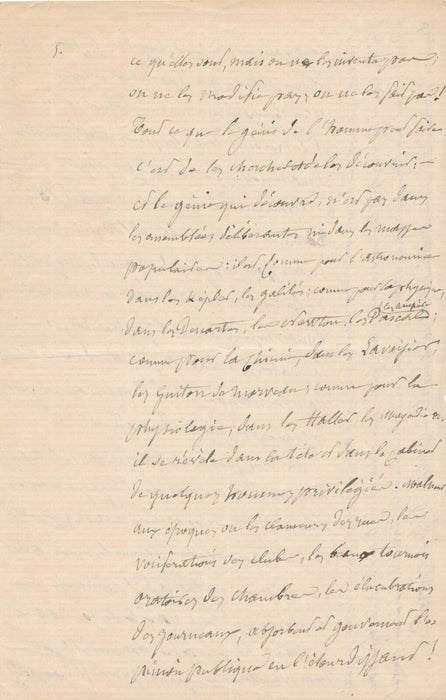 5.
ce qu'elles sont, mais on ne les invente pas;
on ne les modifie pas, on ne les fait pas!
Tout ce que le génie de l'homme peut faire
c'est de les chercher et de les découvrir; —
et le génie qui découvre, n'est pas dans
les assemblées délibérantes ni dans les masses
populaires: il est, comme pour l'astronomie
dans les Képler, les galilés; comme pour la physique,
les ampère
dans les Descartes, les Newton, les Pascal;
comme pour la chimie, dans les Lavoisier,
les Guiton de morveau; comme pour la
physiologie, dans les Haller, les
il se révèle dans la tête et dans le cabinet
de quelques hommes privilégiés. Malheur
aux époques où les clameurs des rues, les
vociférations des clubs, les beaux tournois
oratoires des chambres, les élucubrations
des journaux, absorbent et gouvernent l'o-
pinion publique en l'étourdissant!